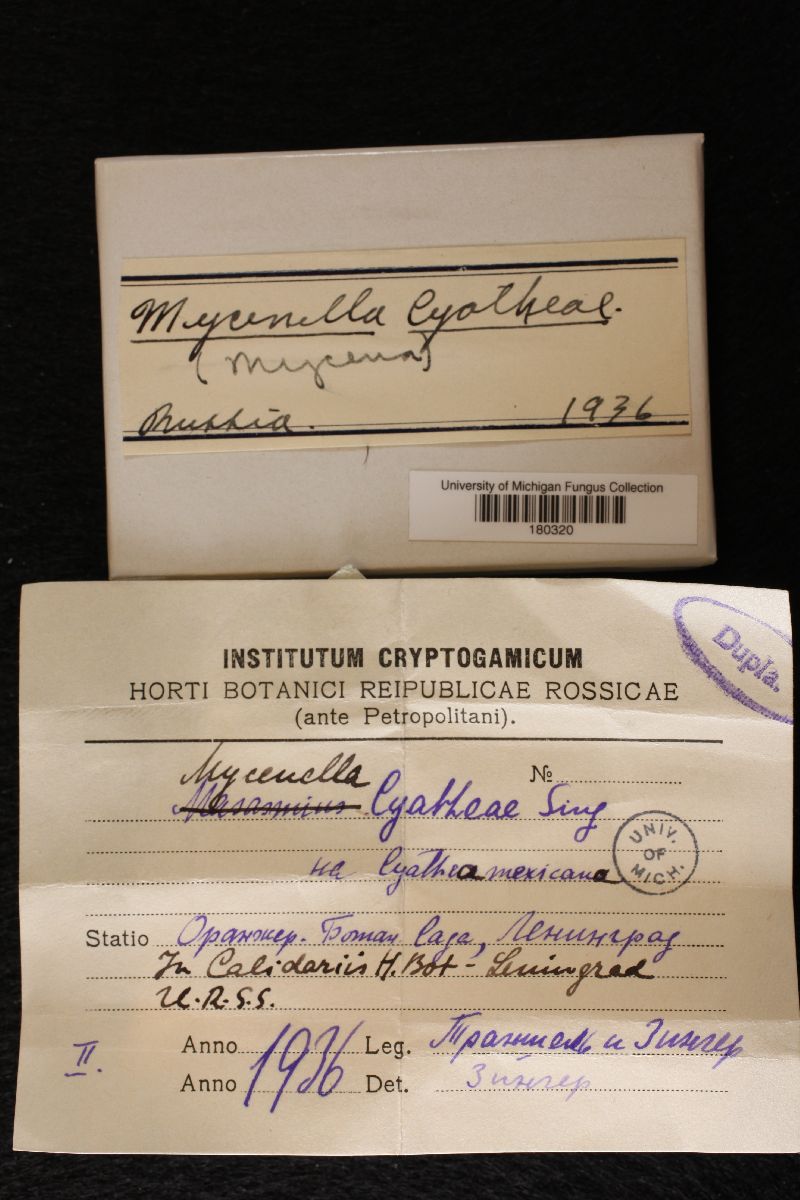 Mycenella Cyatheae.
(Mycena)
Russia. 1936
University of Michigan Fungus Collection
180320
INSTITUTUM CRYPTOGAMICUM
HORTI BOTANICI REIPUBLICAE ROSSICAE
(ante Petropolitani).
Dupla.
Mycenella
№
Marasmius Cyatheae Sing
на Cyathea mexicana
UNIV. OF MICH.
Statio Оранжер. Ботан Сада, Ленинград
In Calidariis H. Bot - Leningrad
U.R.S.S.
II.
Anno 1936 Leg. Траншель и Зингер
Anno Det. Зингер